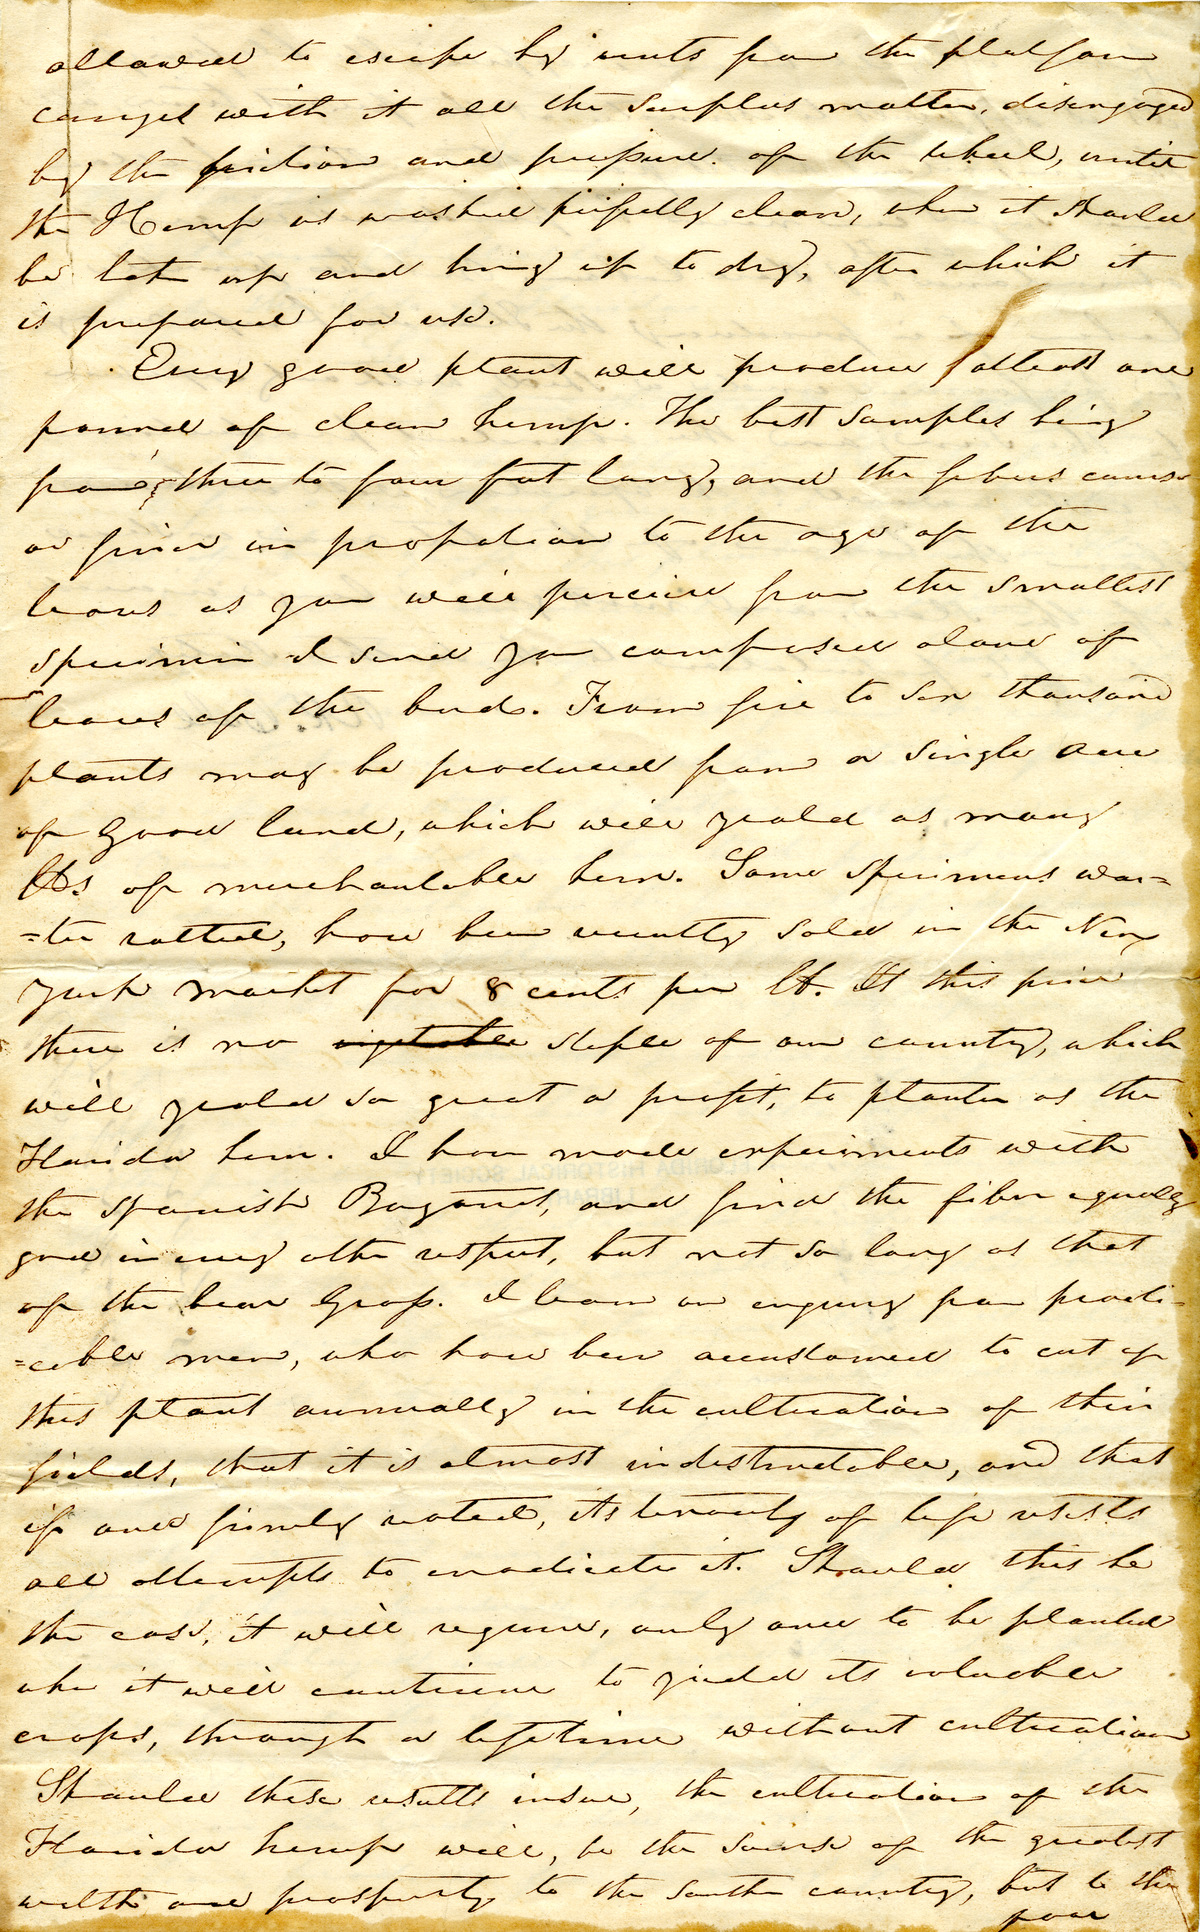 allowed to escape by vents from the platform
carryes with it all the surplus matter, disengaged
by the friction and pressure of the wheel, until
the Hemp is washed perfectly clean, when it should
be taken up and hung up to dry, after which it
is prepared for use.
Every good plant will produce atleast one
pound of clean hemp. The best samples being
from three to four feet long, and the fibers coarse
or finer in propotion to the age of the
leaves as you will perceive from the smallest
specimin I send you composed alone of
leaves of the bud. From five to six thousand
plants may be produced from a single acre
of good land, which will yeald as many
lbs of merchantable hem. Some specimens wa=
=ter rotted, have been recently sold in the New
York market for 8 cents per lb. At this price
there is no vegetable staple of our country, which
will yeald so great a profit, to planter as the
Florida hem. I have made experiments with
the Spanish Bayonet, and find the fiber equally
good in every other respect, but not so long as that
of the bear Grass. I learn on enquiry from practi=
=cable men, who have been accustomed to cut up
this plant annually in the cultivation of their
fields, that it is almost indestructable, and that
if once firmly rooted, its tenacity of life resists
all attempts to eradicate it. Should this be
the case, it will require, only once to be planted
when it will continue to yield its valuable
crops, through a lifetime without cultivation
Should these results insue, the cultivation of the
Florida hemp will, be the source of the greatest
welth and prosperity to the South country, but to the
poor
FLORIDA HISTORICAL SOCIETY
LIBRARY